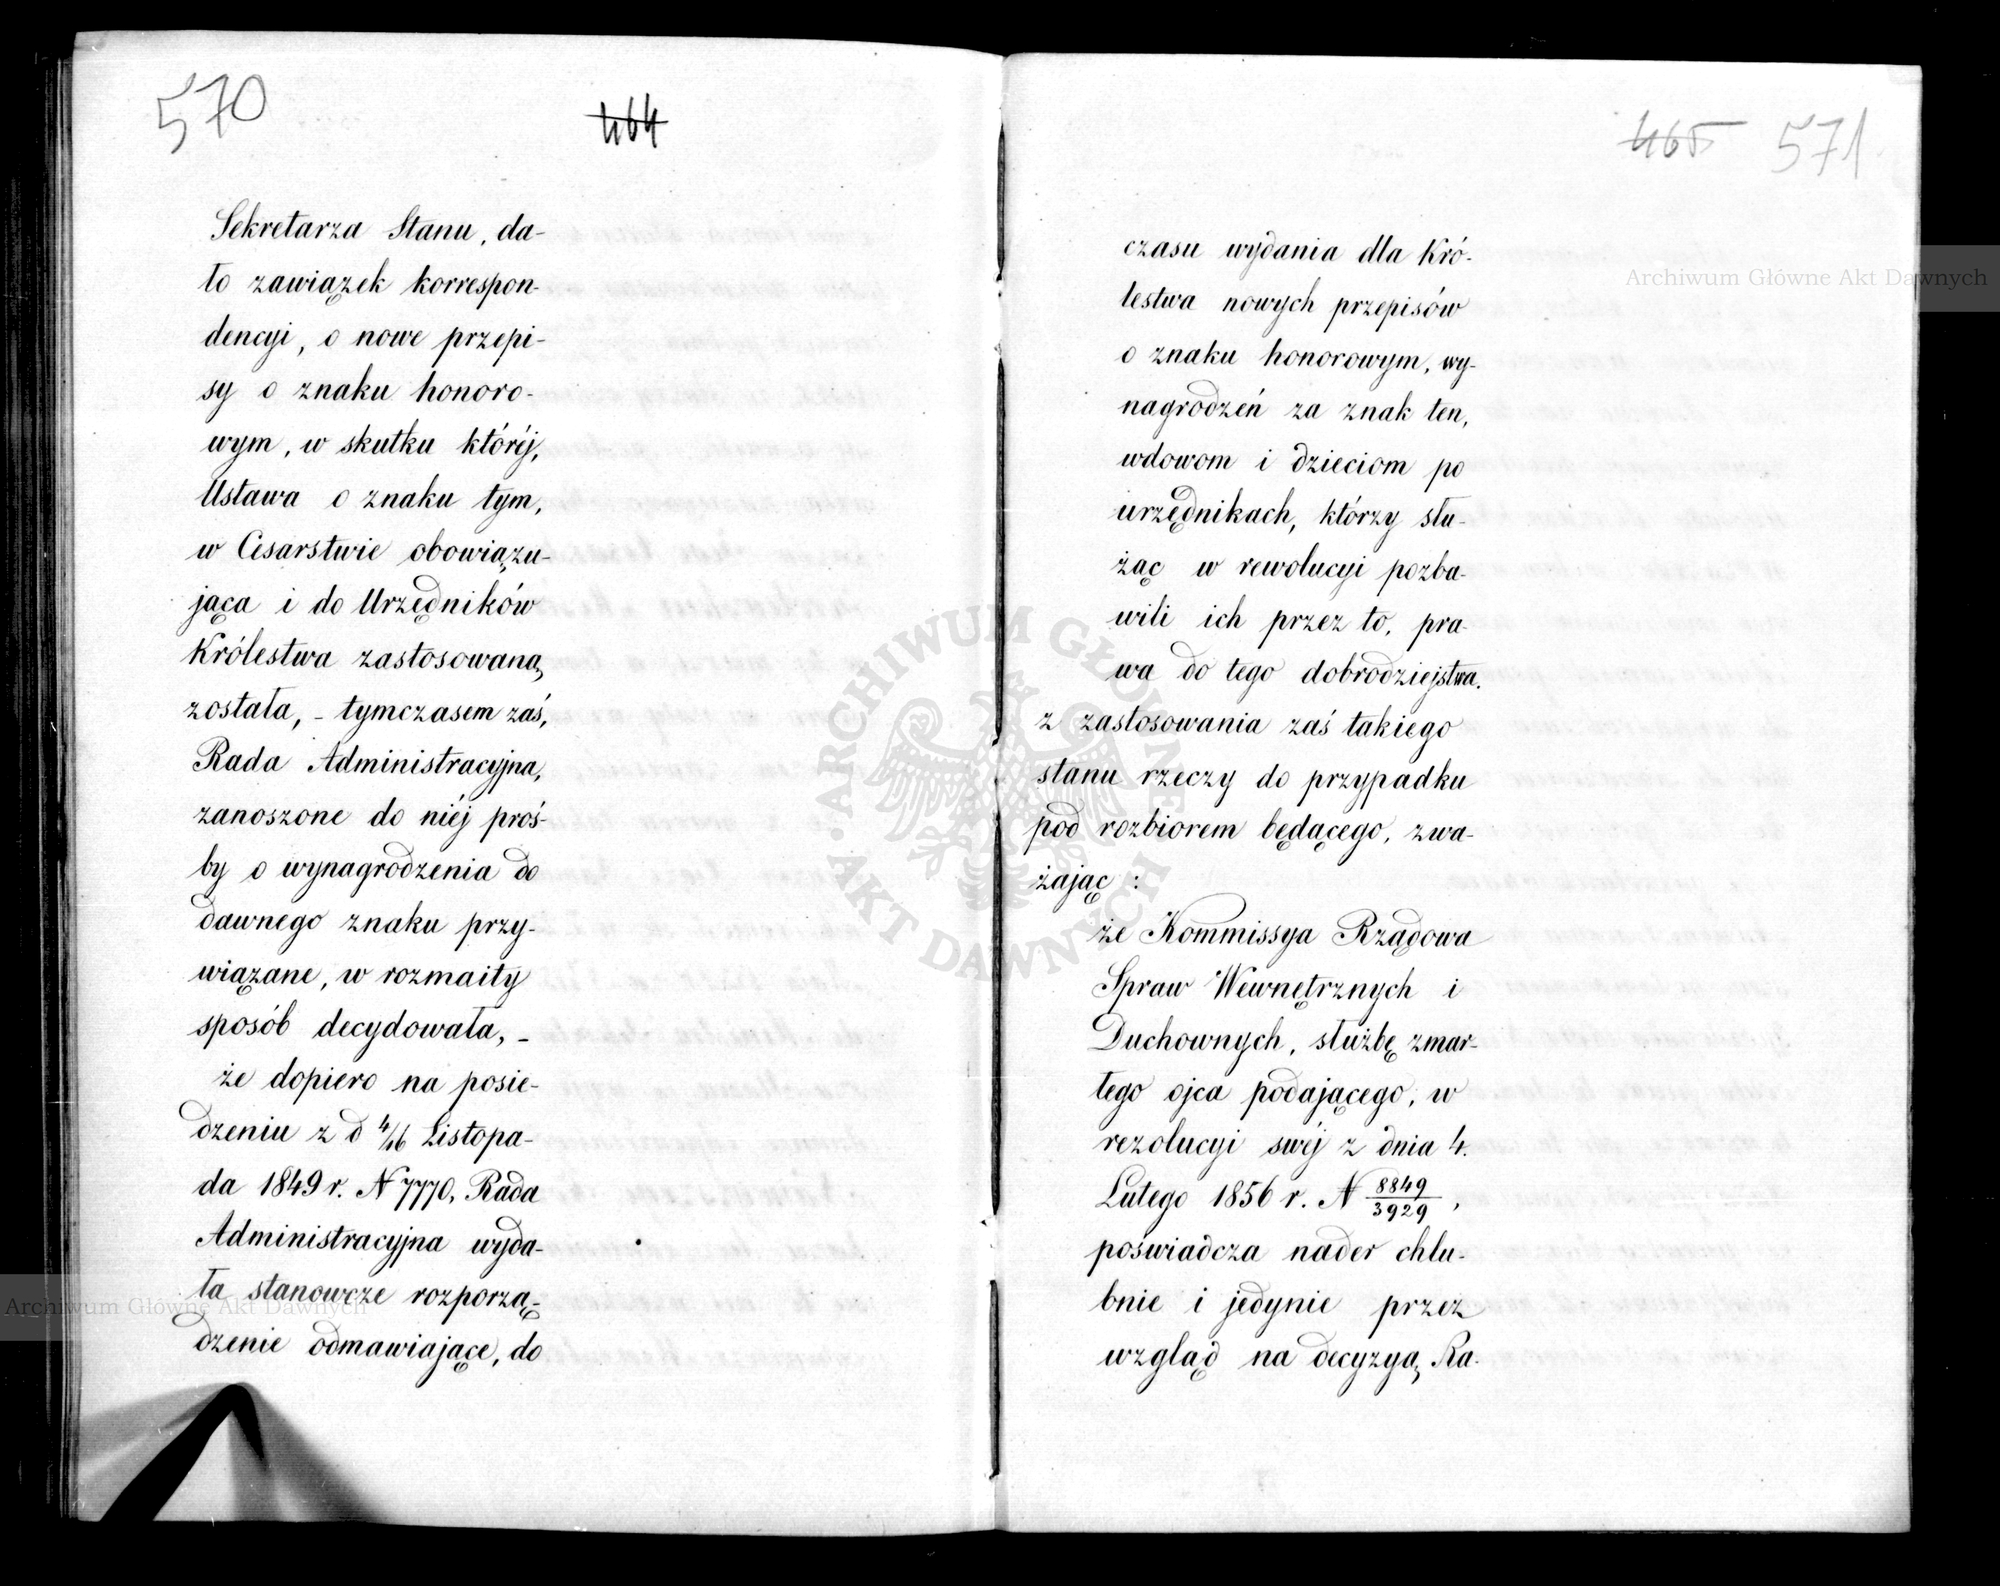 570
464
Sekretarza Stanu, da-
ło zawiązek korrespon-
dencyi, o nowe przepi-
sy o znaku honoro-
wym, w skutku któréj,
Ustawa o znaku tym,
w Cesarstwie obowiązu-
jąca i do Urzędników
Królestwa zastosowaną
została, - tymczasem zaś,
Rada Administracyjna,
zanoszone do niéj proś-
by o wynagrodzenia do
dawnego znaku przy-
wiązane, w rozmaity
sposób decydowała, -
że dopiero na posie-
dzeniu z d 4/16 Listopa-
da 1849 r. N 7770, Rada
Administracyjna wyda-
ła stanowcze rozporzą-
dzenie odmawiające, do
465 571
czasu wydania dla Kró-
lestwa nowych przepisów
o znaku honorowym, wy-
nagrodzeń za znak ten,
wdowom i dzieciom po
urzędnikach, którzy słu-
żąc w rewolucyi pozba-
wili ich przez to, pra-
wa do tego dobrodziejstwa.
z zastosowania zaś takiego
stanu rzeczy do przypadku
pod rozbiorem będącego, zwa-
żając :
że Kommissya Rządowa
Spraw Wewnętrznych i
Duchownych, służbę zmar-
łego ojca podającego, w
rezolucyi swéj z dnia 4.
Lutego 1856 r. N 8849/3929,
poświadcza nader chlu-
bnie i jedynie przez
wzgląd na decyzyą Ra-
Archiwum Główne Akt Dawnych
Archiwum Główne Akt Dawnych
ARCHIWUM GŁÓWNE AKT DAWNYCH